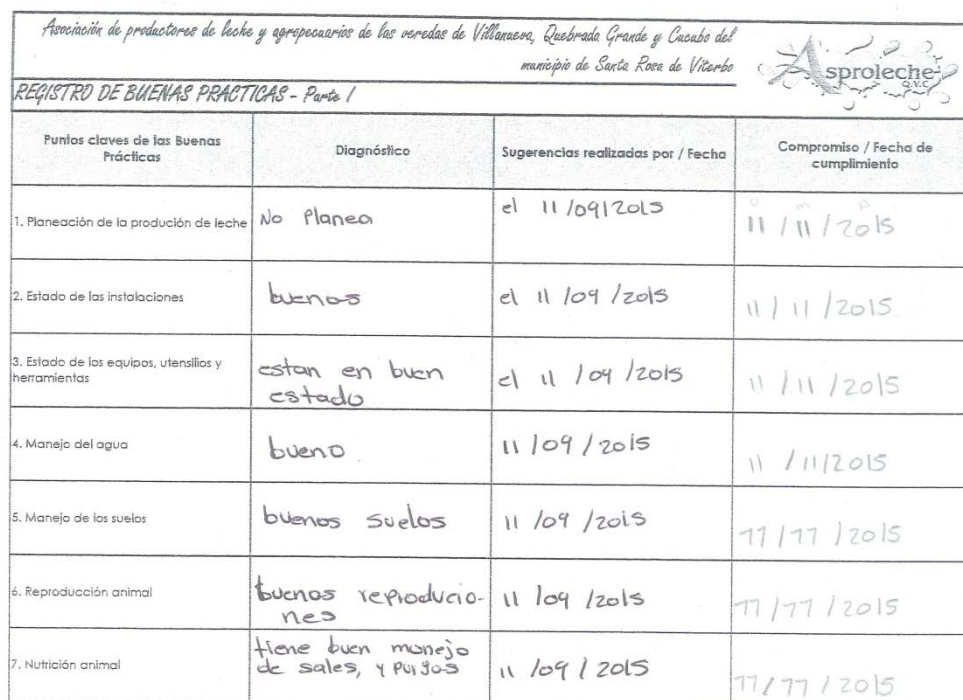 Asociación de productores de leche y agropecuarios de las veredas de Villanueva, Quebrada Grande y Cucubo del
municipio de Santa Rosa de Viterbo
Asproleche
Q.V.C
REGISTRO DE BUENAS PRACTICAS - Parte I
Puntos claves de las Buenas
Prácticas
Diagnóstico
Sugerencias realizadas por / Fecha
Compromiso / Fecha de
cumplimiento
1. Planeación de la produción de leche
No Planea
el 11/09/2015
D m A
11/11/2015
2. Estado de las instalaciones
buenas
el 11/09/2015
11/11/2015
3. Estado de los equipos, utensilios y
herramientas
estan en buen
estado
el 11/09/2015
11/11/2015
4. Manejo del agua
bueno
11/09/2015
11/11/2015
5. Manejo de los suelos
buenos suelos
11/09/2015
11/11/2015
6. Reproducción animal
buenos reproducio-
nes
11/09/2015
11/11/2015
7. Nutrición animal
tiene buen manejo
de sales, y purgas
11/09/2015
11/11/2015